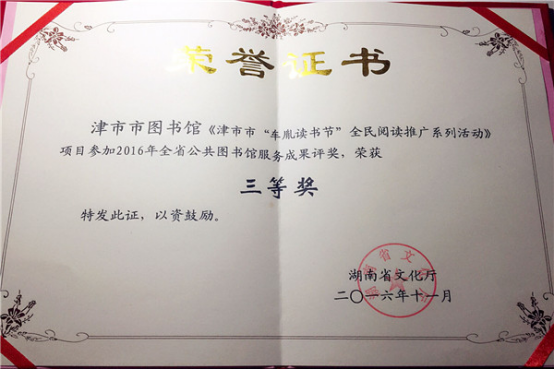 荣誉证书
津市市图书馆《津市市“车胤读书节”全民阅读推广系列活动》
项目参加2016年全省公共图书馆服务成果评奖，荣获
三等奖
特发此证，以资鼓励。
湖南省文化厅
二〇一六年十一月